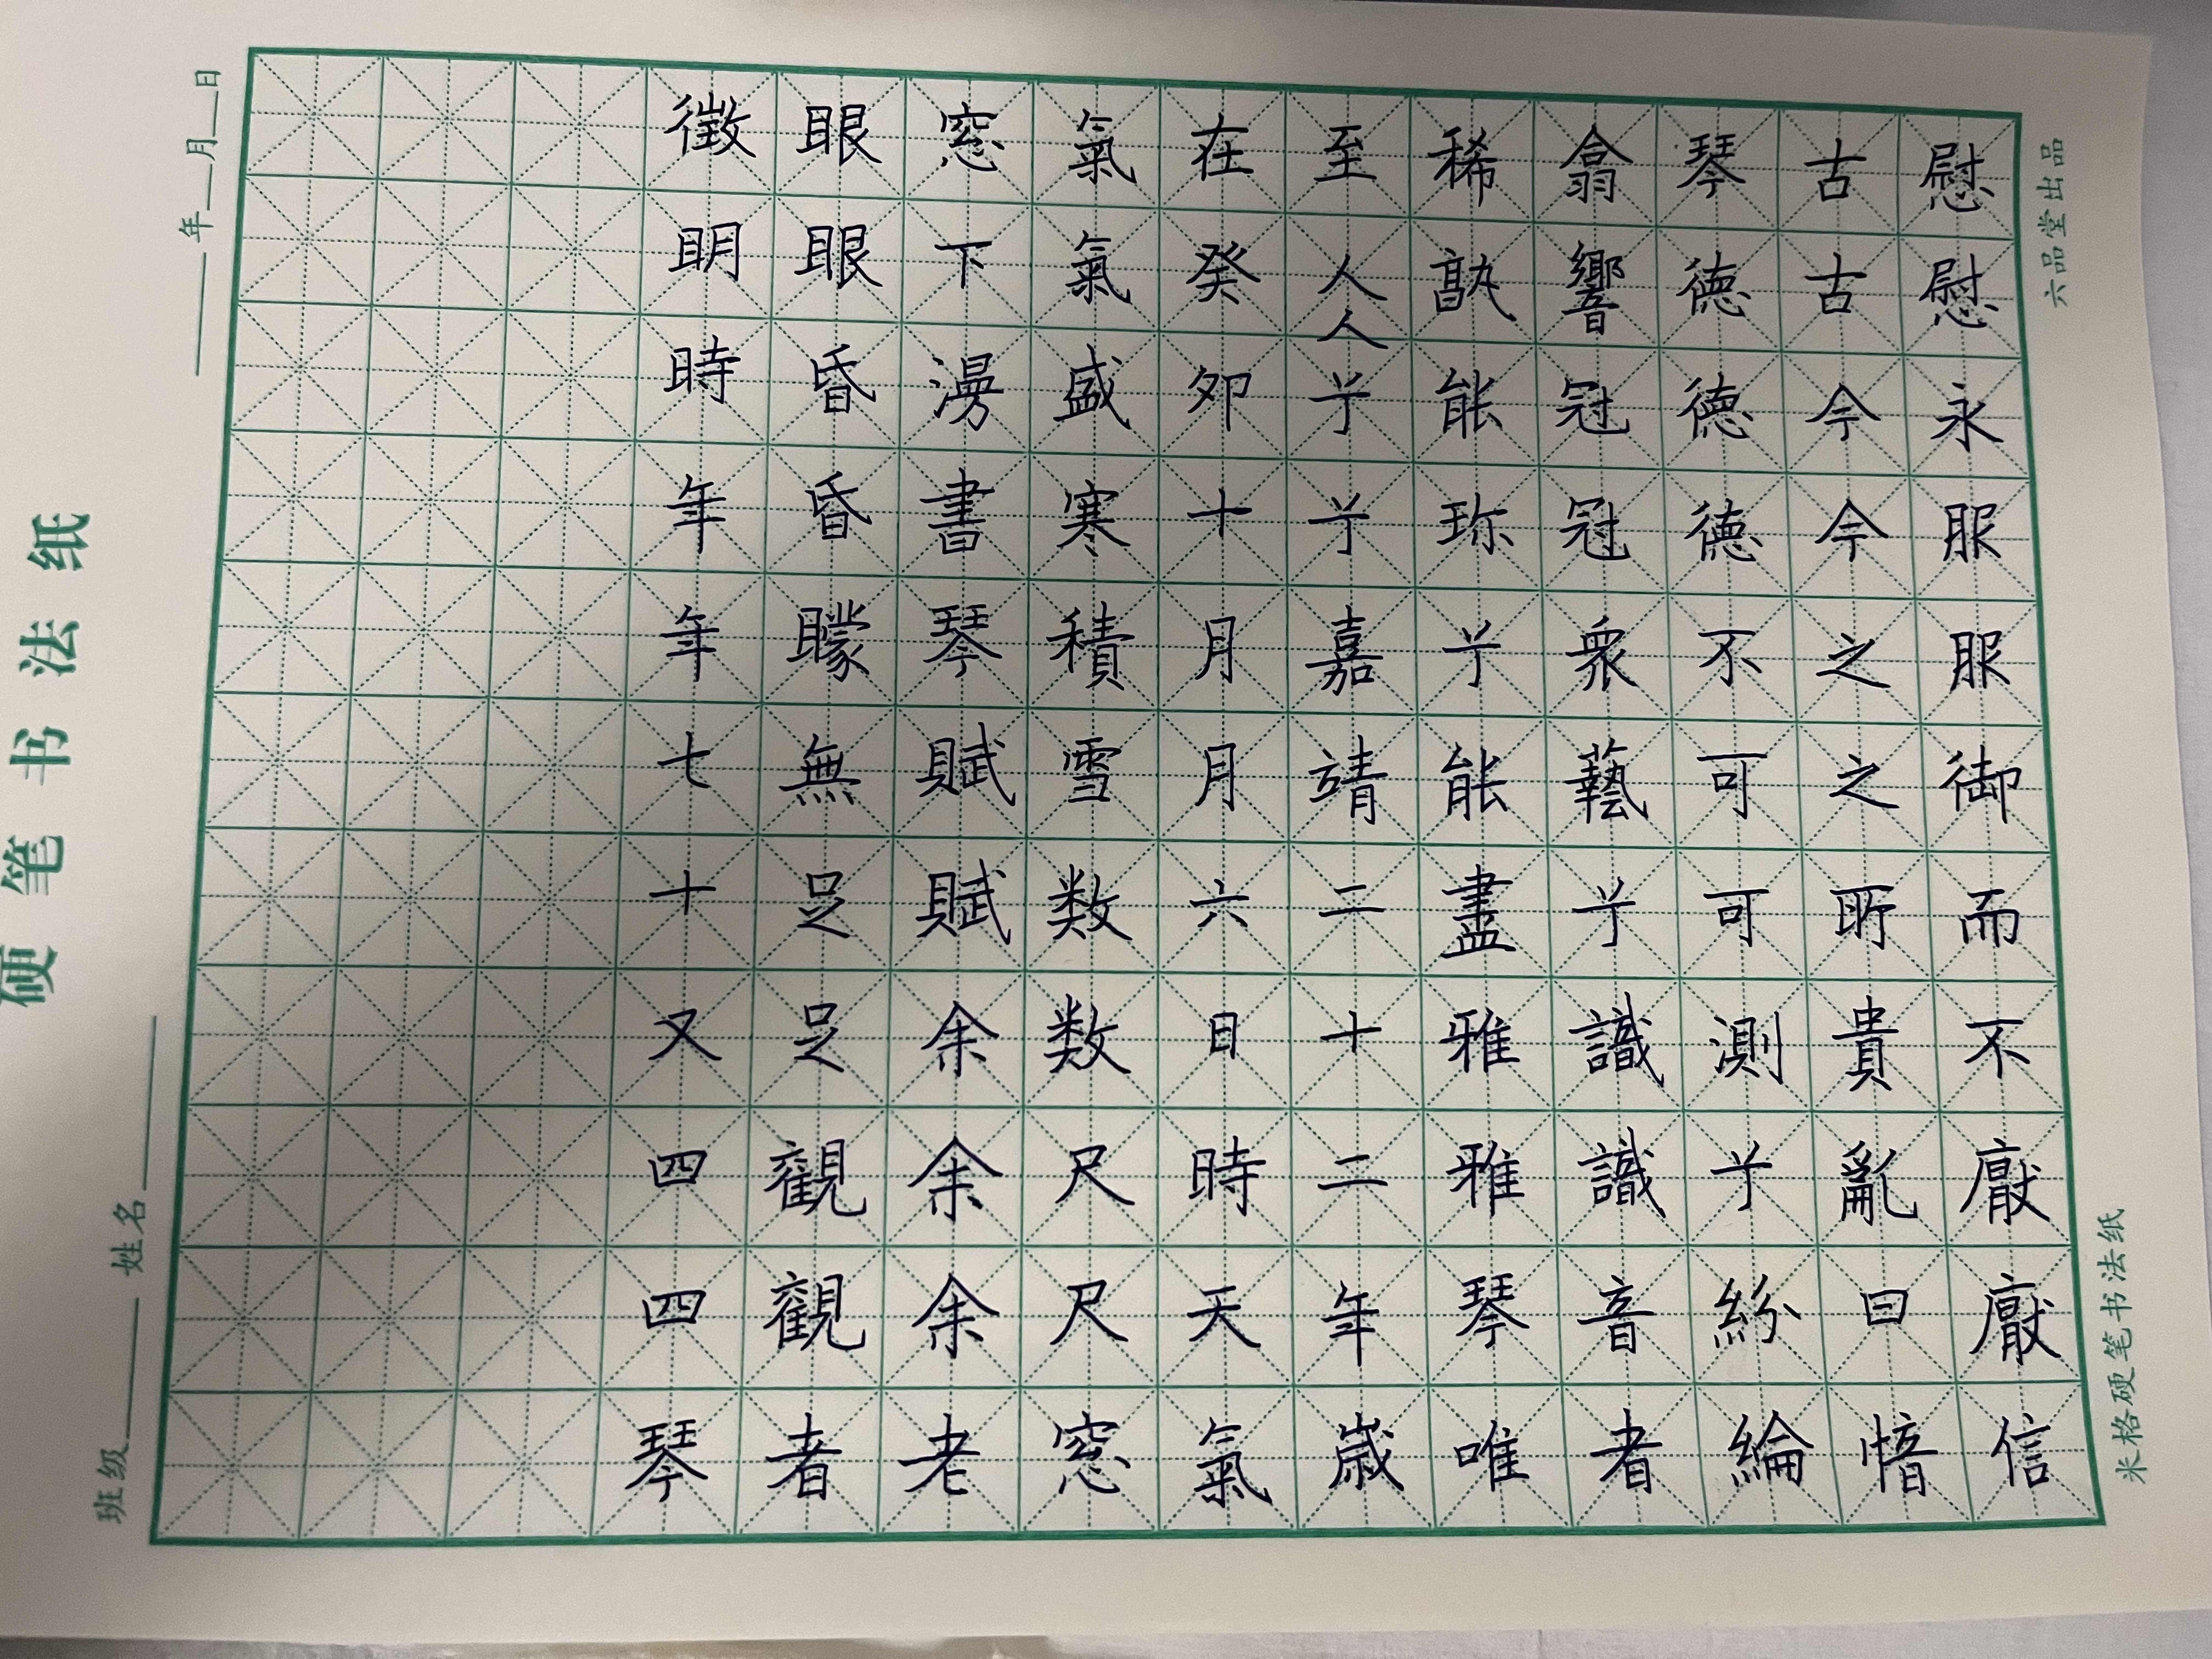 慰慰永服服御而不厭厭信
古古今今之之所貴亂曰愔
琴德德德不可可測兮紛綸
翕響冠冠衆藝兮識識音者
稀孰能珎兮能盡雅雅琴唯
至人人兮兮嘉靖二十二年歲
在癸卯十月月六日時天氣
氣氣盛寒積雪数数尺尺窓
窓下漫書琴賦賦余余余老
眼眼昏昏朦無只只觀觀着
徵明時年年七十又四四琴
硬笔书法纸
班级 姓名
年 月 日
米格硬笔书法纸
六品堂出品